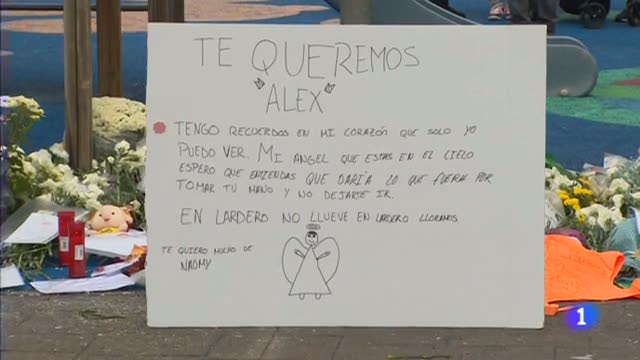 TE QUEREMOS
"ALEX"
TENGO RECUERDOS EN MI CORAZÓN QUE SOLO YO
PUEDO VER. MI ANGEL QUE ESTAS EN EL CIELO
ESPERO QUE ENTIENDAS QUE DARÍA LO QUE FUERA POR
TOMAR TU MANO Y NO DEJARTE IR.
EN LARDERO NO LLUEVE EN LARDERO LLORAMOS.
TE QUIERO MUCHO DE
NAOMY
1